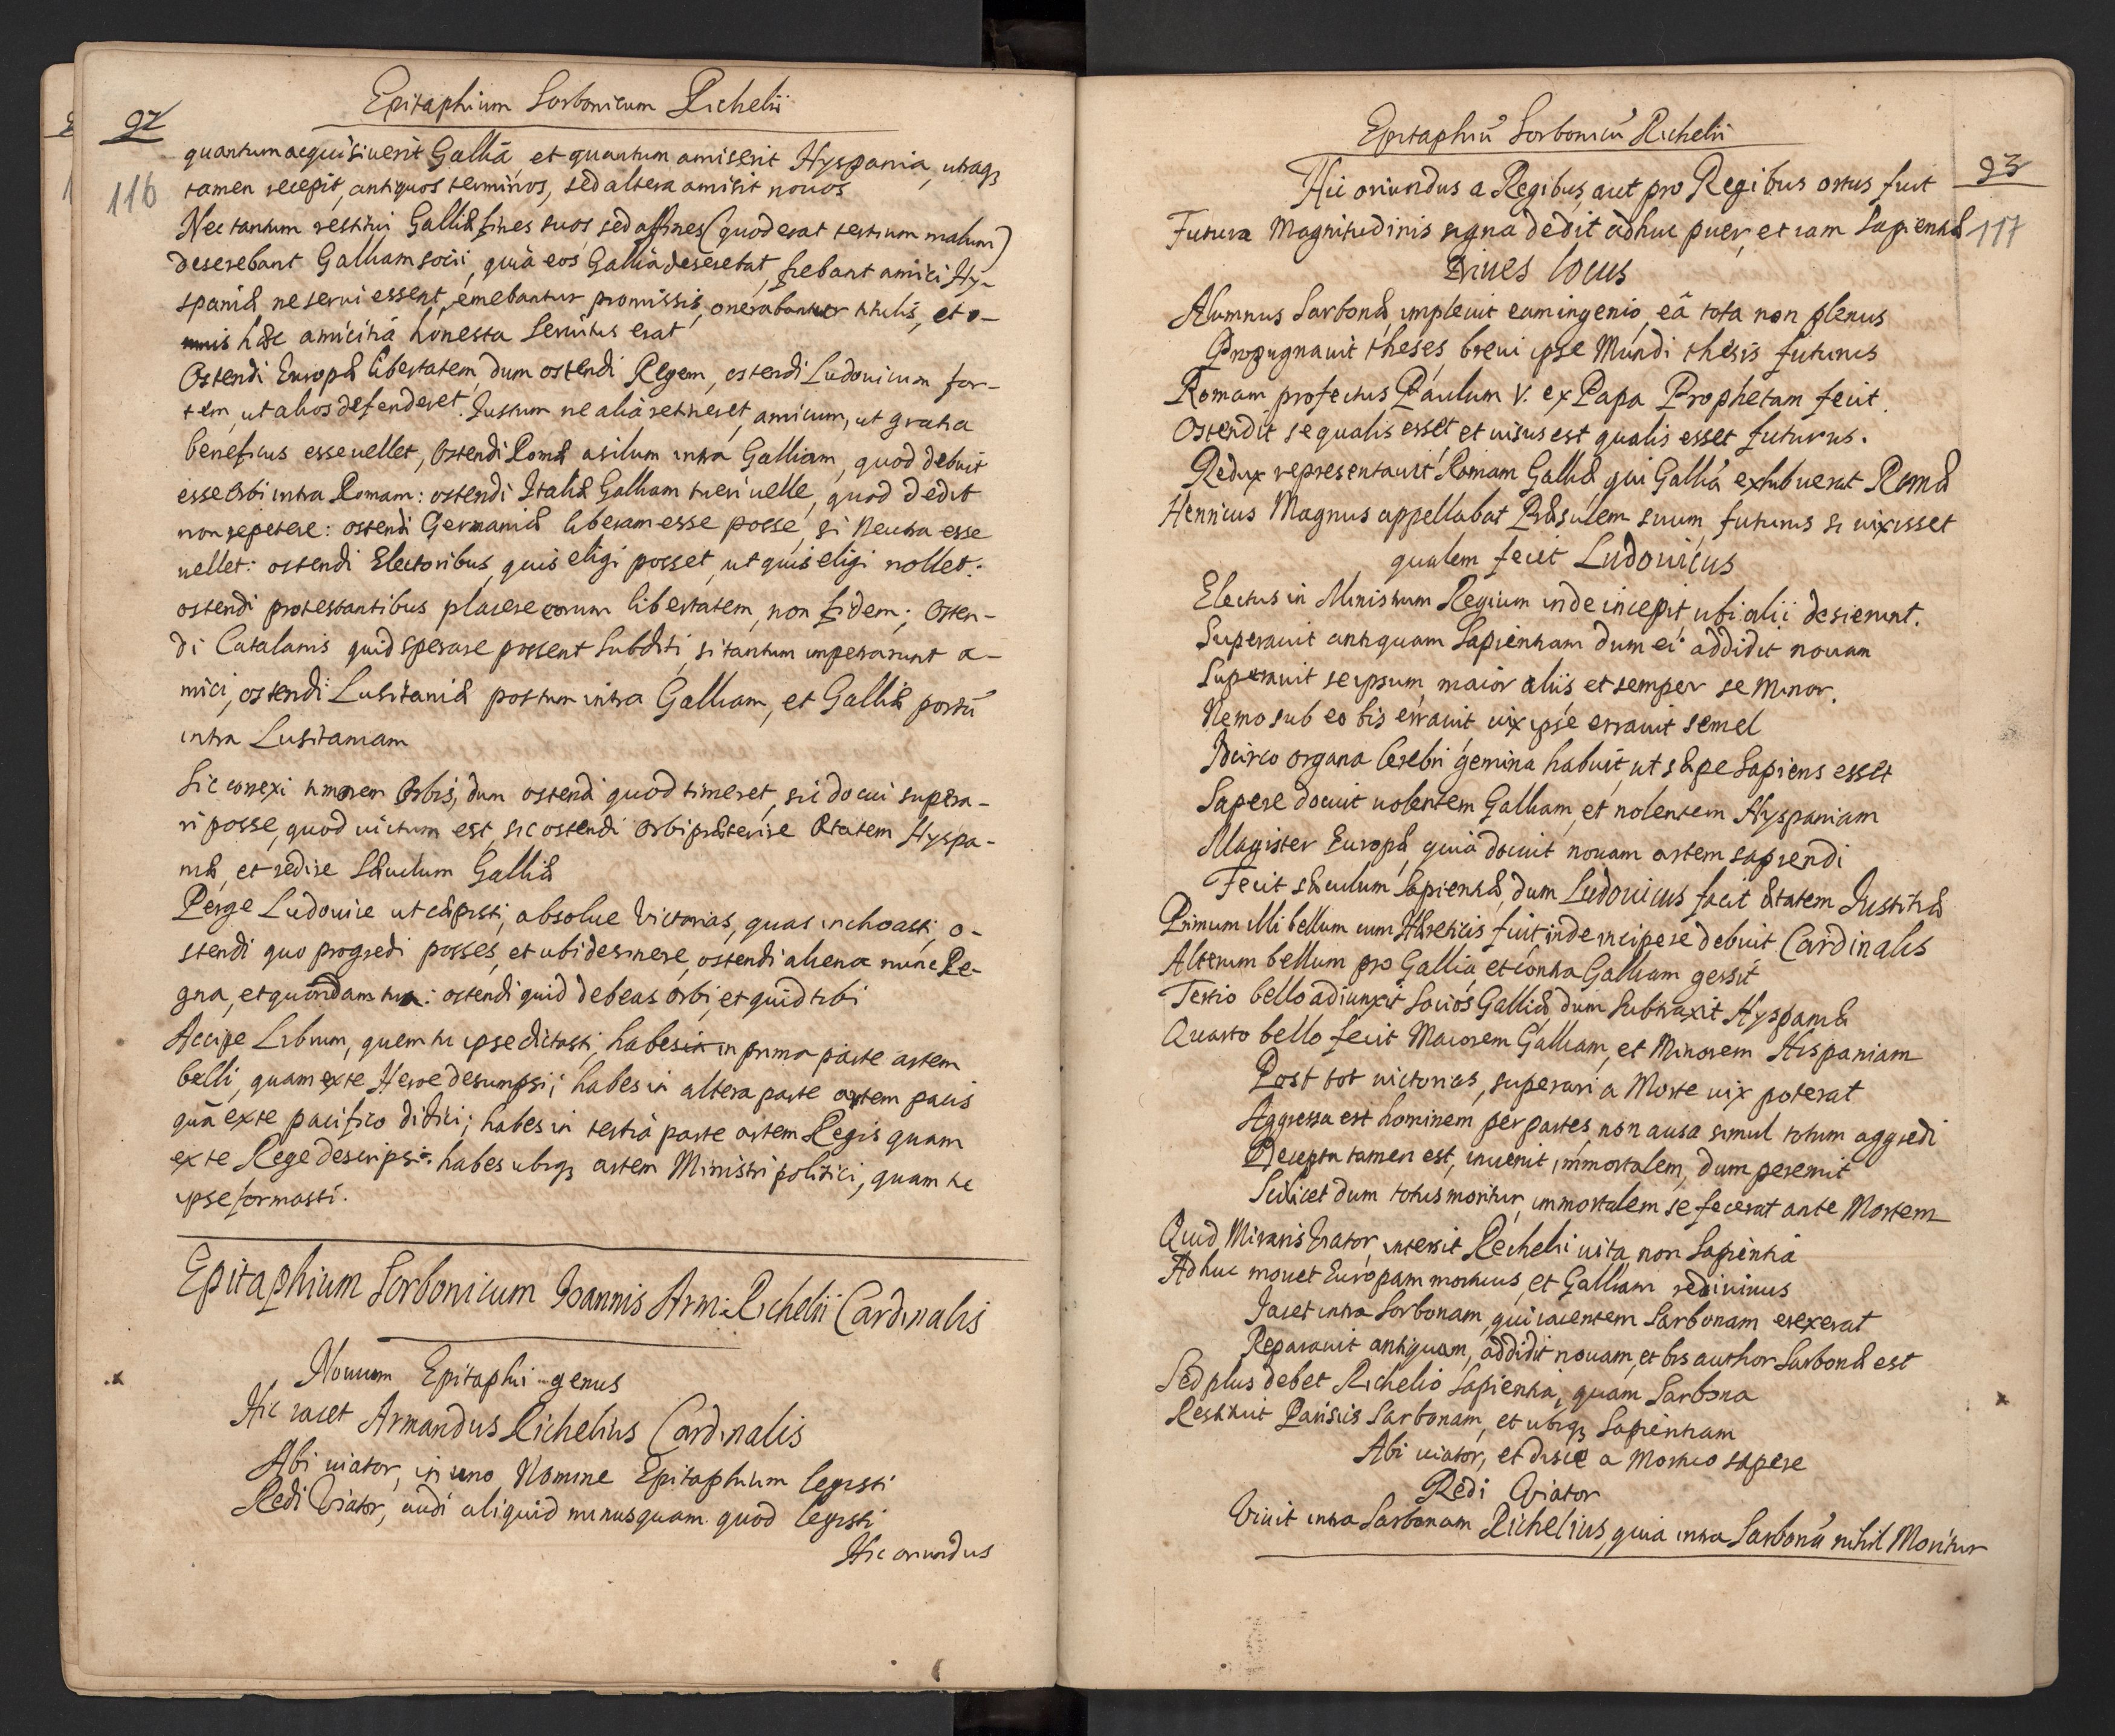 Epitaphium Sorbonicum Richelii
92
116
quantum acquisiuerit Galliâ, et quantum amiserit Hyspania, utraqȝ
tamen recepit, antiquos terminos, sed altera amisit nouos
Nec tantum restitui Galliæ fines suos, sed affines (quod erat tertium malum)
deserebant Galliam socii, quia eos Gallia deserebat, fiebant amici Hy-
spaniæ ne serui essent, emebantur promissis, onerabantur titulis, et o-
mnis hæc amicitiâ honesta Seruitus erat
Ostendi Europæ libertatem, dum ostendi Regem, ostendi Ludouicum for-
tem, ut alios defenderet. Justum ne alia retineret, amicum, ut gratia
beneficus esse uellet, Ostendi Romæ asilum intra Galliam, quod debuit
esse Orbi intra Romam: ostendi Italiæ Galliam tueri uelle, quod dedit
non repetere: ostendi Germaniæ liberam esse posse, si Neutra esse
uellet: ostendi Electoribus, quis eligi posset, ut quis eligi nollet:
ostendi protestantibus placere eorum libertatem, non fidem; Osten-
di Catalanis quid sperare possent Subditi, si tantum imperarunt a-
mici, ostendi Lusitaniæ portum intra Galliam, et Galliæ portũ
intra Lusitaniam
Sic correxi timorem Orbis, dum ostendi quod timeret, sic docui supera-
ri posse, quod uictum est, sic ostendi Orbi præterire Ætatem Hyspa-
niæ, et redire Sæculum Galliæ
Perge Ludouice ut cæpisti, absolue Victorias, quas inchoasti, o-
stendi quo progredi posses, et ubi desinere, ostendi aliena nunc Re-
gna, et quondam tua: ostendi quid debeas Orbi, et quid tibi
Accipe Librum, quem tu ipse dictasti, habes in prima parte artem
belli, quam ex te Heroe desumpsi; habes in altera parte artem pacis
quã ex te pacifico didici; habes in tertiâ parte artem Regis quam
ex te Rege descripsi: habes ubiqȝ artem Ministri politici, quam tu
ipse formasti.
Epitaphium Sorbonicum Joannis Arm: Richelii Cardinalis
Nouum Epitaphii genus
Hic iacet Armandus Richelius Cardinalis
Abi uiator, in uno Nomine Epitaphium legisti
Redi Viator, audi aliquid minus quam quod legisti
Hic oriundus
Epitaphiũ Sorbonicũ Richelii
93
117
Hic oriundus a Regibus, aut pro Regibus ortus fuit
Futuræ Magnitudinis signa dedit adhuc puer, et iam Sapientiæ
Diues locus
Alumnus Sarbonæ, impleuit eam ingenio, eâ tota non plenus
Propugnauit theses, breui ipse Mundi thesis futurus
Romam profectus Paulum V. ex Papa Prophetam fecit.
Ostendit se qualis esset, et uisus est qualis esset futurus.
Redux representauit Romam Galliæ, qui Galliâ exhibuerat Romæ
Henricus Magnus appellabat Præsulem suum, futurus si uixisset
qualem fecit Ludouicus
Electus in Ministrum Regium inde incepit, ubi alii desierunt.
Superauit antiquam Sapientiam dum ei addidit nouam
Superauit seipsum, maior aliis et semper se Minor.
Nemo sub eo bis errauit uix ipse errauit semel
Idcirco organa Cerebri gemina habuit, ut sæpe Sapiens esset
Sapere docuit uolentem Galliam, et nolentem Hyspaniam
Magister Europæ, quia docuit nouam artem sapiendi
Fecit sæculum Sapientiæ, dum Ludouicus facit ætatem Justitiæ
Primum illi bellum cum Hæreticis fuit, inde incipere debuit Cardinalis
Alterum bellum pro Gallia, et contra Galliam gessit
Tertio bello adiunxit Socios Galliæ, dum Subtraxit Hyspaniæ
Quarto bello fecit Maiorem Galliam, et Minorem Hispaniam
Post tot uictorias, superari a Morte uix poterat
Aggressa est hominem per partes, non ausa simul totum aggredi
Decepta tamen est, inuenit immortalem, dum peremit
Scilicet dum totus moritur, immortalem se fecerat ante Mortem
Quid Miraris Viator, interiit Richelii uita, non Sapientia
Adhuc mouet Europam mortuus, et Galliam rediuiuus
Jacet intra Sorbonam, qui iacentem Sarbonam erexerat
Reparauit antiquam, addidit nouam, et bis author Sarbonæ est
Sed plus debet Richelio Sapientia, quam Sarbona
Restituit Parisiis Sarbonam, et ubiqȝ Sapientiam
Abi uiator, et disce a Mortuo sapere
Redi Viator
Viuit intra Sarbonam Richelius, quia intra Sarbonã nihil Moritur